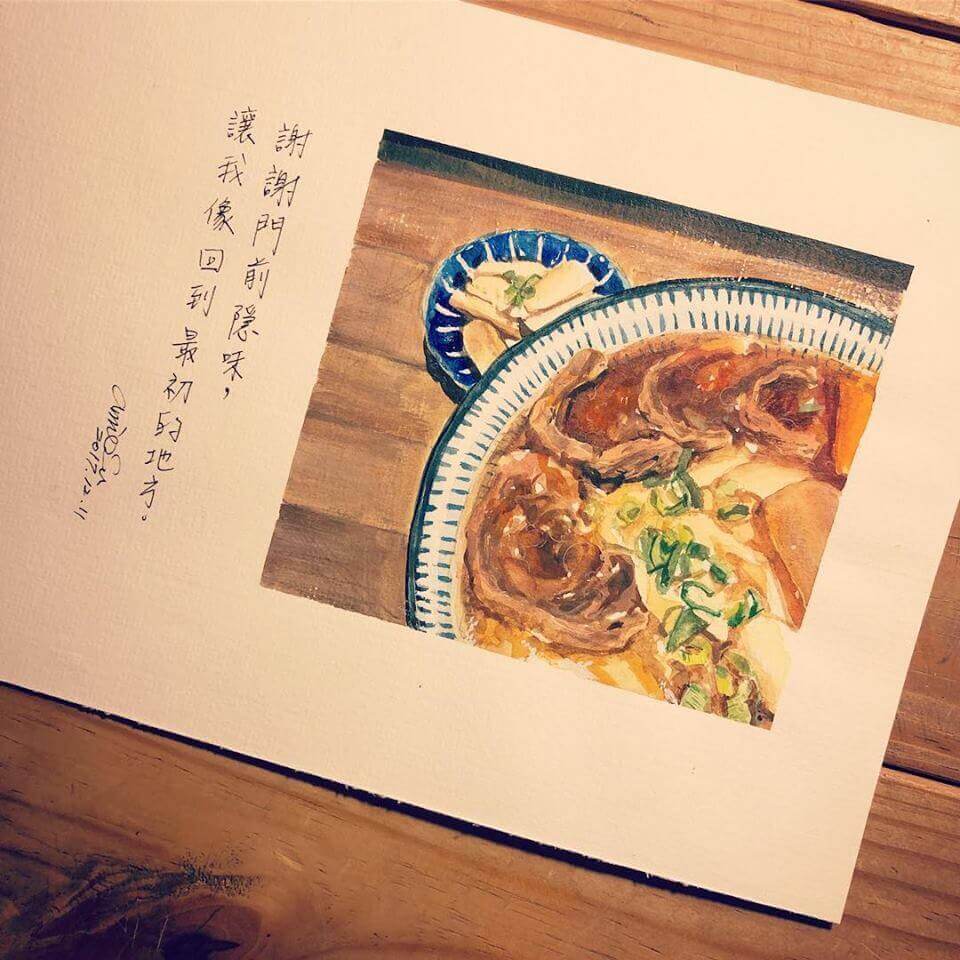 謝謝門前隱味，
讓我像回到最初的地方。
2017.12.11